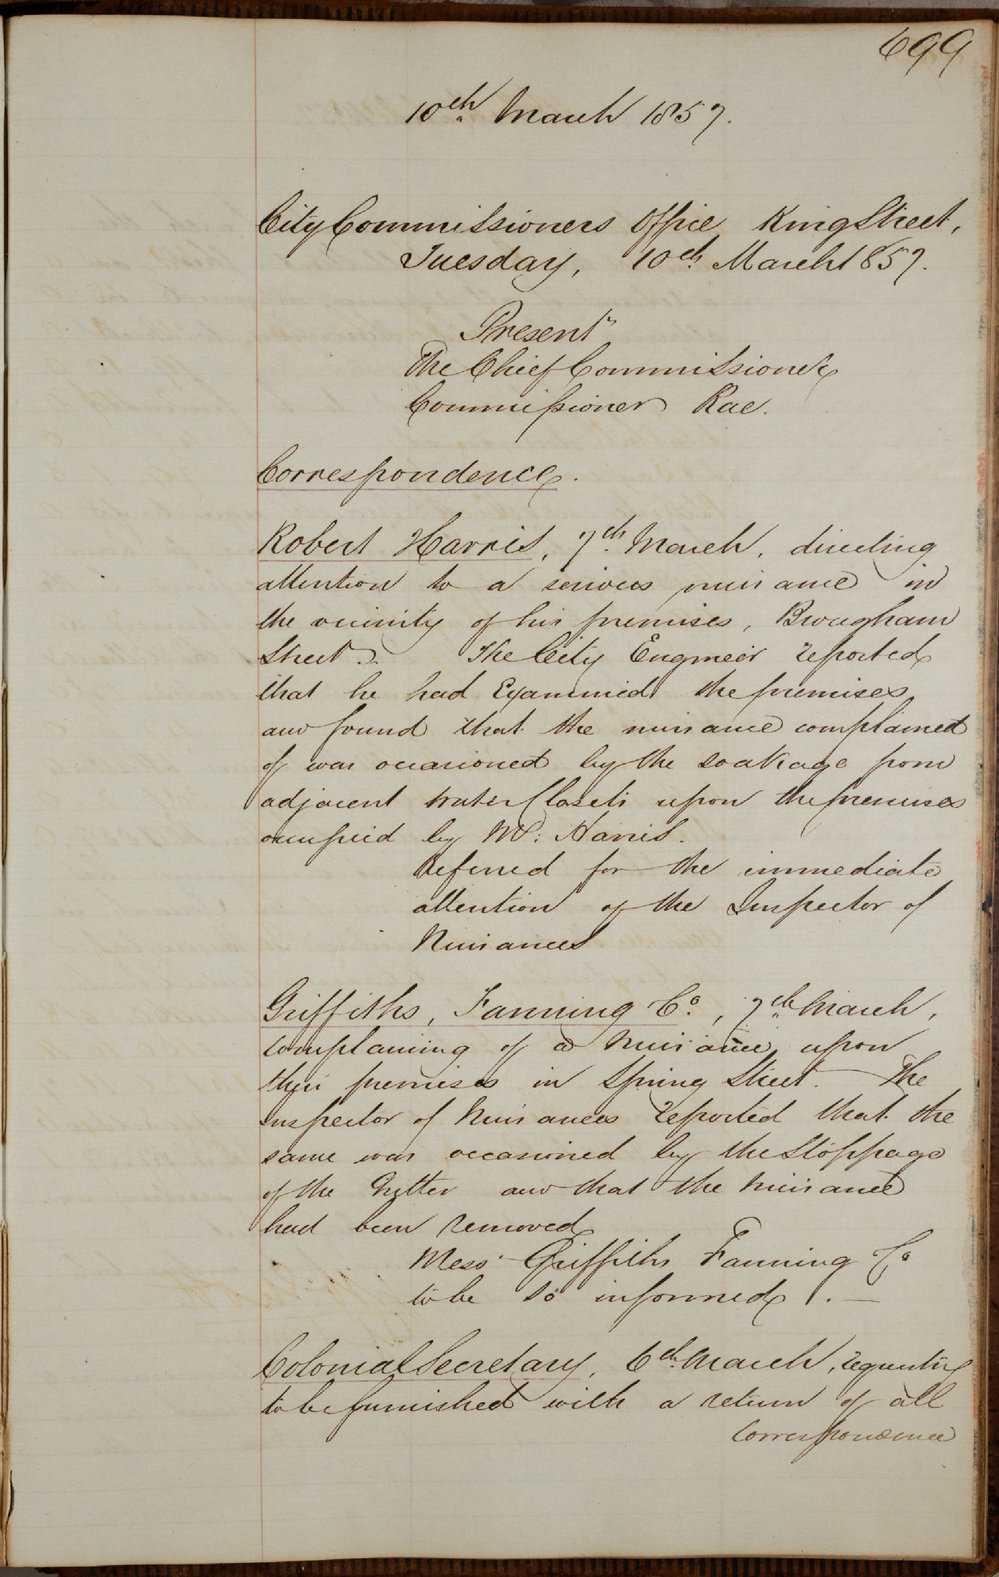 699
10th March 1857.
City Commissioners Office King Street,
Tuesday, 10th March 1857.
Present
The Chief Commissioner
Commissioner Rae.
Correspondence.
Robert Harris, 7th March, directing
attention to a serious nuisance in
the vicinity of his premises, Brougham
Street. The City Engineer reported
that he had Examined the premises
and found that the nuisance complained
of was occasioned by the soakage from
adjacent Water Closets upon the premises
occupied by Mr. Harris.
Referred for the immediate
attention of the Inspector of
Nuisances
Griffiths, Fanning Co., 7th March,
complaining of a Nuisance upon
their premises in Spring Street. The
Inspector of Nuisances reported that the
same was occasioned by the Stoppage
of the Gutter and that the Nuisance
had been removed
Mess Griffiths Fanning Co
to be so informed. —
Colonial Secretary, 6th March, requesting
to be furnished with a return of all
Correspondence